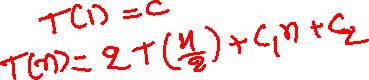 T(1) = C
T(n) = 2 T(n/2) + C₁n + C₂